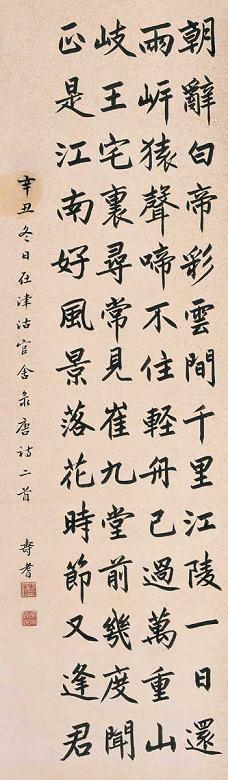 朝辭白帝彩雲間千里江陵一日還
兩岍猿聲啼不住輕舟已過萬重山
岐王宅裏尋常見崔九堂前幾度聞
正是江南好風景落花時節又逢君
辛丑冬日在津沽官舍彔唐詩二首 壽耆